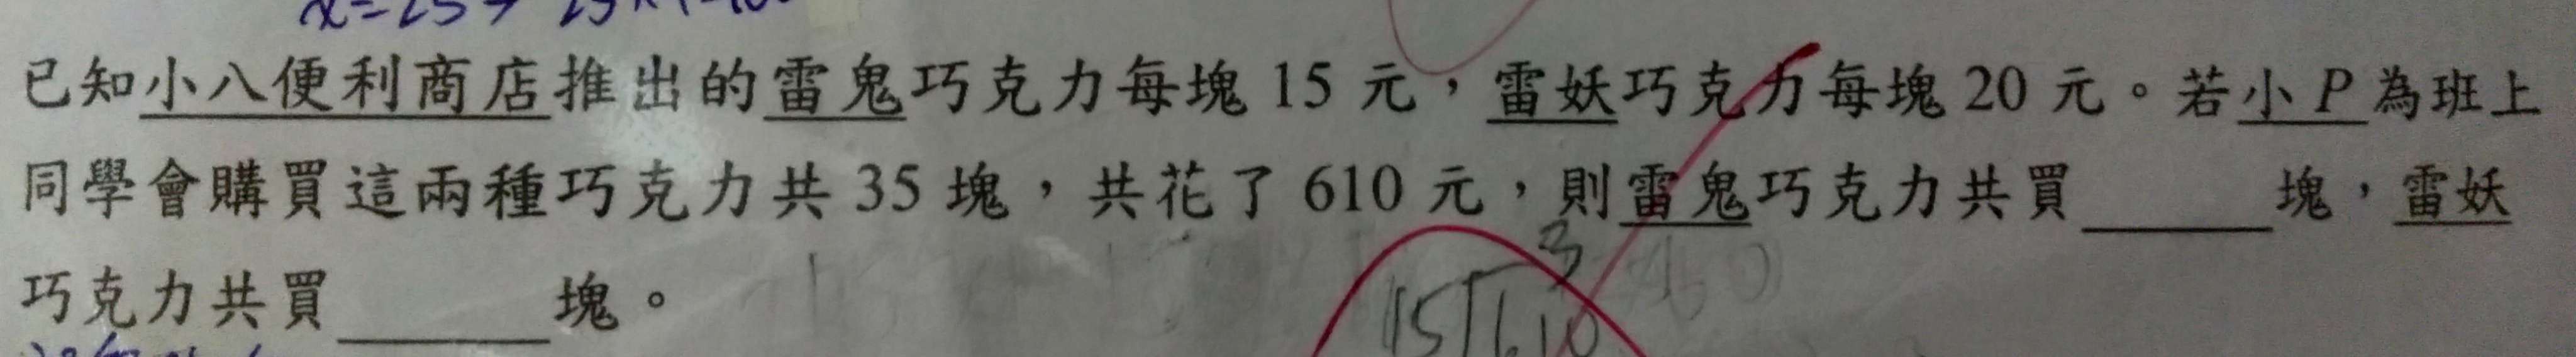 x=25
已知小八便利商店推出的雷鬼巧克力每塊 15 元，雷妖巧克力每塊 20 元。若小 P 為班上
同學會購買這兩種巧克力共 35 塊，共花了 610 元，則雷鬼巧克力共買______塊，雷妖
巧克力共買______塊。
3
15 610